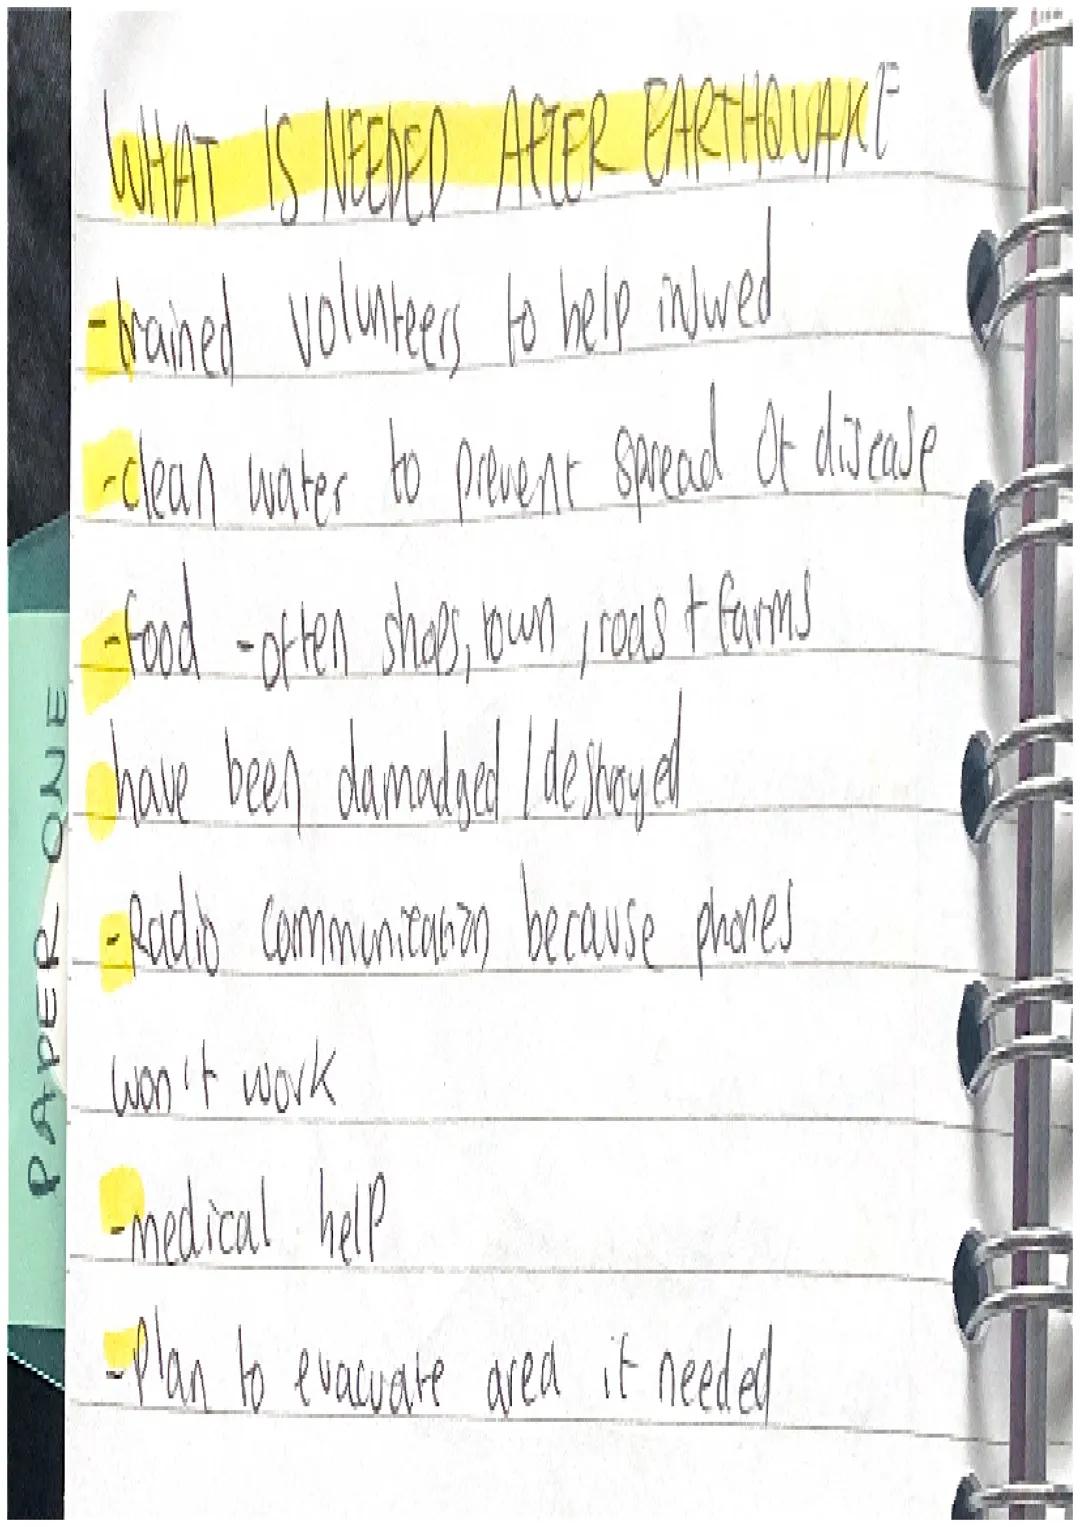 WHAT IS NEEDED AFTER EARTHQUAKE
-trained volunteers to help injured
-clean water to prevent spread of disease
-food -often shops, town, roas + farms
have been damadged / destroyed
-Radio communication because phones
won't work
-medical help
-Plan to evacuate area if needed
PAPER ONE